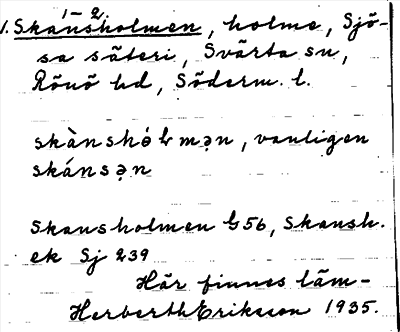 1-2
1. Skansholmen, holme, Sjö-
sa säteri, Svärta sn,
Rönö hd, Söderm. l.
skànshólmən, vanligen
skánsən
Skansholmen G56, Skansh.
ek Sj 239
Här finnes läm-
Herberth Eriksson 1935.